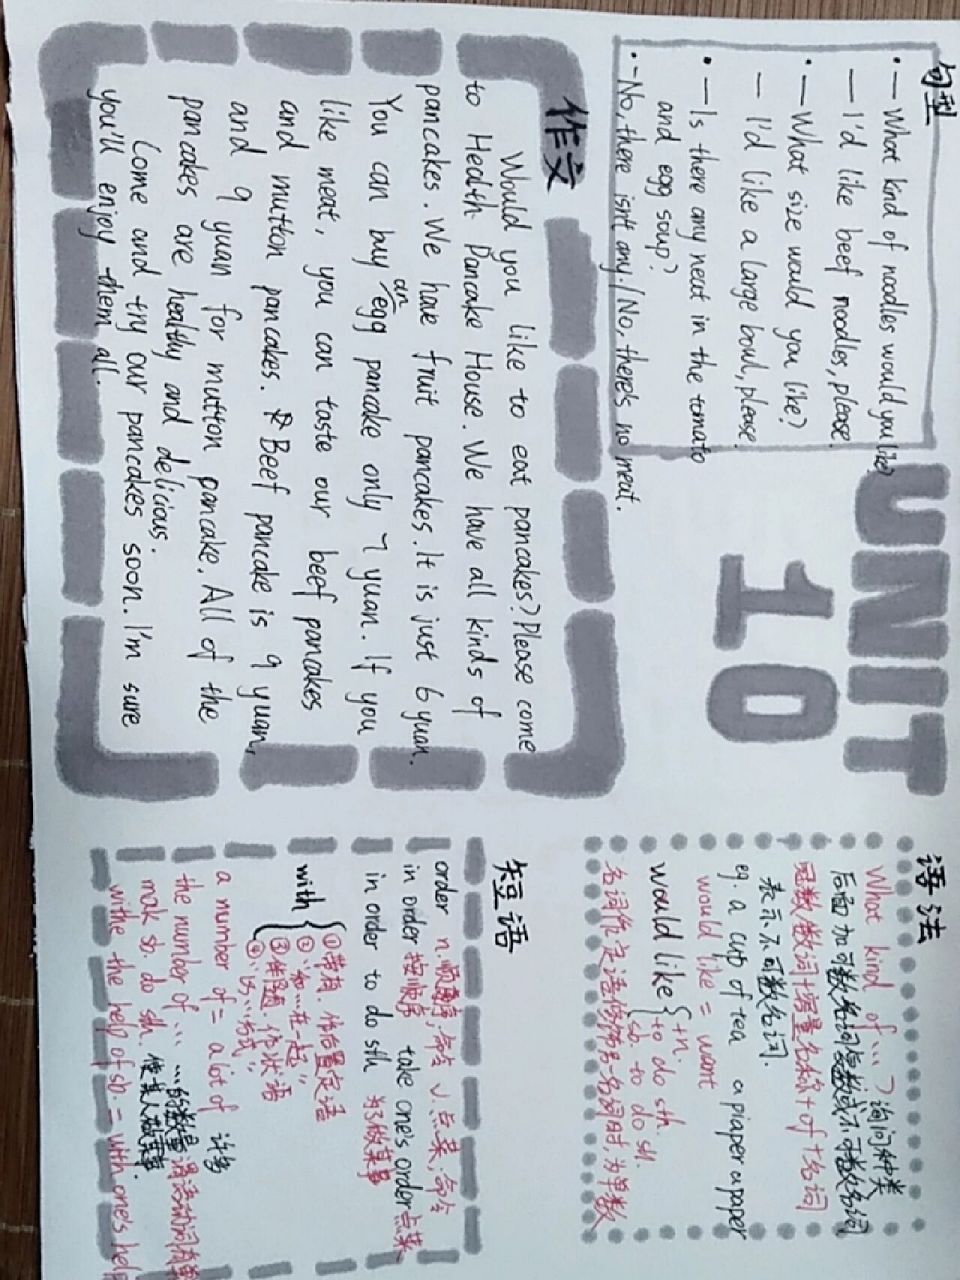 句型
·—What kind of noodles would you like?
—I'd like beef noodles, please.
·—What size would you like?
—I'd like a large bowl, please.
·—Is there any meat in the tomato
and egg soup?
·-No, there isn't any./No, there's no meat.
UNIT
10
作文
Would you like to eat pancakes? Please come
to Health Pancake House. We have all kinds of
pancakes. We have fruit pancakes. It is just 6 yuan.
You can buy an egg pancake only 7 yuan. If you
like meat, you can taste our beef pancakes
and mutton pancakes. Beef pancake is 9 yuan,
and 9 yuan for mutton pancake. All of the
pancakes are healthy and delicious.
Come and try our pancakes soon. I'm sure
you'll enjoy them all.
语法
What kind of…? 询问种类
后面加可数名词复数或不可数名词
数词+容量名词+of+名词
表示不可数名词.
eg. a cup of tea a piaper a paper
would like = want
would like {+n.
+to do sth.
sb. to do sth.
名词作定语修饰另一名词时,为单数
短语
order n.顺序,命令 v.点菜,命令
in order 按顺序 take one's order 点菜
in order to do sth 为了做某事
with {①带有. 作后置定语
②"和…在一起"
③伴随, 作状语
④"以…方式"
a number of = a lot of 许多
the number of … …的数量 谓语动词用单
mak sb. do sth. 使某人做某事.
withe the help of sb. = with one's help